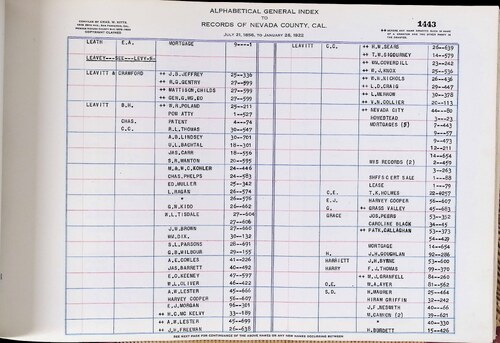 ALPHABETICAL GENERAL INDEX
TO
RECORDS OF NEVADA COUNTY, CAL.
JULY 21, 1856, TO JANUARY 28, 1922
1443
COPYRIGHT CLAIMED
LEATH E.A. MORTGAGE
LEAVEY---SEE---LEVY
LEAVITT & CRAWFORD ++ J.S.JEFFREY 25-336
++ R.G.GENTRY 27-899
++ MATTISON, CHILDS 27-599
++ GEN.G MG.CO 27-599
LEAVITT B.H. ++ W.R.POLAND 25-211
POW ATTY 1-527
CHAS. PATENT 4-74
C.C. R.L.THOMAS 30-547
A.B.LINDSEY 30-701
U.L.BACHTAL 18-301
JAS.CARR 18-556
S.R.WANTON 20-595
M.& W.C.KOHLER 24-446
CHAS.PHELPS 24-583
ED.MULLER 25-342
L.HAGAN 26-574
" 26-576
G.W.KIDD 26-662
W.L.TISDALE 27-604
27-606
J.H.BROWN 27-660
WM.DIX. 36-132
S.L.PARSONS 28-691
G.B.WILBUR 27-155
A.E.COWLES 41-226
JAS.BARNETT 40-492
E.O.KEENEY 41-597
W.L.OLIVER 46-422
A.W.LESTER 45-666
HARVEY COOPER 56-607
E.J.MORGAN 96-301
++ H.C.MC KELVY 33-189
++ A.W.LESTER 45-699
++ J.H.FREEMAN 26-638
LEAVITT C.C. ++ H.W.SEARS 28-639
++ T.W.SIGOURNEY 14-579
++ WM.COVERDILL 23-242
++ W.J.KNOX 25-536
++ W.H.NICHOLS 26-436
++ L.D.CRAIG 29-447
++ L.MERROW 30-378
++ V.N.COLLIER 20-113
++ NEVADA CITY 44-80
HOMESTEAD 3-23
MORTGAGES (5) 7-443
9-57
9-473
12-211
14-654
MIS RECORDS (2) 2-459
3-263
SHFFS CERT SALE 1-88
LEASE 1-78
C.E. T.K.HOLMES
E.J. HARVEY COOPER 56-607
G. ++ GRASS VALLEY 45-683
GRACE JOS.PEERS 53-352
CAROLINE BLACK 34-45
++ PATK.CALLAGHAN 53-373
54-429
MORTGAGE 14-654
H. J.H.COUGHLAN 92-286
HARRIETT J.H.BYRNE 53-609
HARRY F.J.THOMAS 99-370
++ M.J.GRANFELL 84-260
O.E. M.A.AYER 81-562
S.D. H.MAURER 25-464
HIRAM GRIFFIN 32-242
J.F.NESMITH 40-66
W.CANIEN (2) 39-621
" 40-330
H.BURDETT 15-426
SEE NEXT PAGE FOR CONTINUATION OF THE ABOVE NAMES OR ANY NEW NAMES OCCURRING BETWEEN